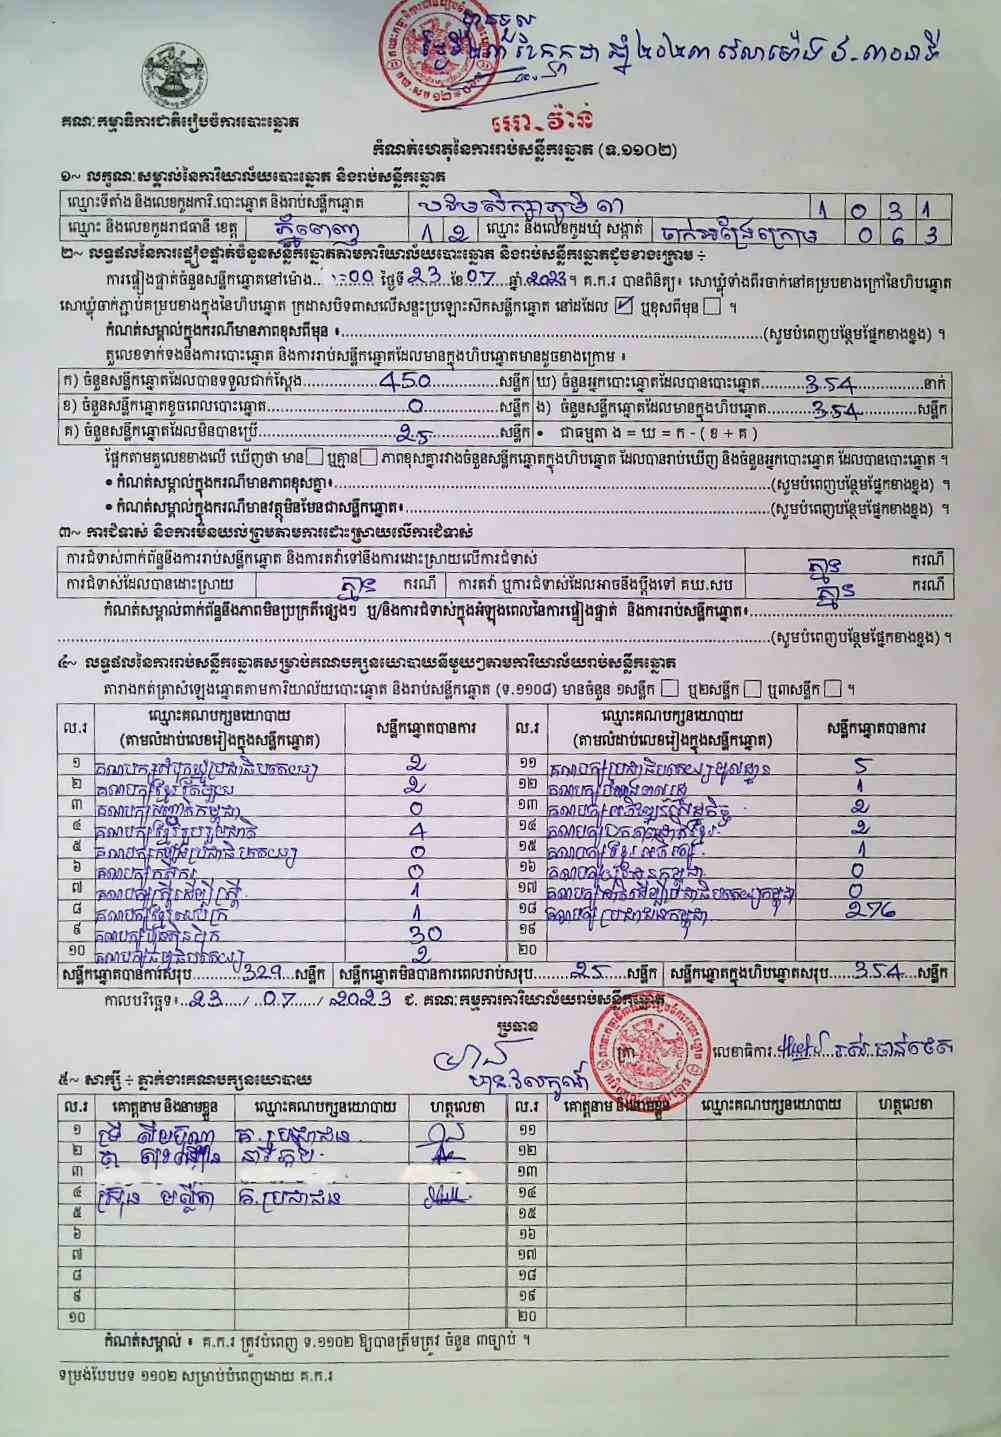 បានទទួល
ថ្ងៃទី២៣ ខែកក្កដា ឆ្នាំ២០២៣ វេលាម៉ោង ៥-៣០នាទី
គណៈកម្មាធិការជាតិរៀបចំការបោះឆ្នោត
អោ-វ៉ាន់
កំណត់ហេតុនៃការរាប់សន្លឹកឆ្នោត (ទ.១១០២)
១~ លក្ខណៈសម្គាល់នៃការិយាល័យបោះឆ្នោត និងរាប់សន្លឹកឆ្នោត
ឈ្មោះទីតាំង និងលេខកូដការិ.បោះឆ្នោត និងរាប់សន្លឹកឆ្នោត បឋមសិក្សាភូមិ ៣ 1 0 3 1
ឈ្មោះ និងលេខកូដរាជធានី ខេត្ត ភ្នំពេញ 1 2 ឈ្មោះ និងលេខកូដឃុំ សង្កាត់ ចាក់អង្រែក្រោម 0 6 3
២~ លទ្ធផលនៃការផ្ទៀងផ្ទាត់ចំនួនសន្លឹកឆ្នោតតាមការិយាល័យបោះឆ្នោត និងរាប់សន្លឹកឆ្នោតដូចខាងក្រោម ÷
ការផ្ទៀងផ្ទាត់ចំនួនសន្លឹកឆ្នោតនៅម៉ោង...:00 ថ្ងៃទី 23 ខែ 07 ឆ្នាំ 2023 ។ គ.ក.រ បានពិនិត្យ៖ សោឃ្លុំទាំងពីរចាក់នៅគម្របខាងក្រៅនៃហិបឆ្នោត
សោឃ្លុំចាក់ភ្ជាប់គម្របខាងក្នុងនៃហិបឆ្នោត ក្រដាសបិទពាសលើសន្ទះប្រឡោះសឹកសន្លឹកឆ្នោត នៅដដែល ☑ ឬខុសពីមុន ☐ ។
កំណត់សម្គាល់ក្នុងករណីមានភាពខុសពីមុន ៖ (សូមបំពេញបន្ថែមផ្នែកខាងខ្នង) ។
តួលេខទាក់ទងនឹងការបោះឆ្នោត និងការរាប់សន្លឹកឆ្នោតដែលមានក្នុងហិបឆ្នោតមានដូចខាងក្រោម ៖
ក) ចំនួនសន្លឹកឆ្នោតដែលបានទទួលជាក់ស្តែង 450 សន្លឹក ឃ) ចំនួនអ្នកបោះឆ្នោតដែលបានបោះឆ្នោត 354 នាក់
ខ) ចំនួនសន្លឹកឆ្នោតខូចពេលបោះឆ្នោត 0 សន្លឹក ង) ចំនួនសន្លឹកឆ្នោតដែលមានក្នុងហិបឆ្នោត 354 សន្លឹក
គ) ចំនួនសន្លឹកឆ្នោតដែលមិនបានប្រើ 25 សន្លឹក • ជាធម្មតា ង = ឃ = ក - ( ខ + គ )
ផ្អែកតាមតួលេខខាងលើ ឃើញថា មាន ☐ ឬគ្មាន ☐ ភាពខុសគ្នារវាងចំនួនសន្លឹកឆ្នោតក្នុងហិបឆ្នោត ដែលបានរាប់ឃើញ និងចំនួនអ្នកបោះឆ្នោត ដែលបានបោះឆ្នោត ។
• កំណត់សម្គាល់ក្នុងករណីមានភាពខុសគ្នា៖ (សូមបំពេញបន្ថែមផ្នែកខាងខ្នង) ។
• កំណត់សម្គាល់ក្នុងករណីមានវត្ថុមិនមែនជាសន្លឹកឆ្នោត៖ (សូមបំពេញបន្ថែមផ្នែកខាងខ្នង) ។
៣~ ការជំទាស់ និងការមិនយល់ព្រមតាមការដោះស្រាយលើការជំទាស់
ការជំទាស់ពាក់ព័ន្ធនឹងការរាប់សន្លឹកឆ្នោត និងការតវ៉ាទៅនឹងការដោះស្រាយលើការជំទាស់ គ្មាន ករណី
ការជំទាស់ដែលបានដោះស្រាយ គ្មាន ករណី ការតវ៉ា ឬការជំទាស់ដែលអាចនឹងប្តឹងទៅ គឃ.សប គ្មាន ករណី
កំណត់សម្គាល់ពាក់ព័ន្ធនឹងភាពមិនប្រក្រតីផ្សេងៗ ឬ/និងការជំទាស់ក្នុងអំឡុងពេលនៃការផ្ទៀងផ្ទាត់ និងការរាប់សន្លឹកឆ្នោត៖
(សូមបំពេញបន្ថែមផ្នែកខាងខ្នង) ។
៤~ លទ្ធផលនៃការរាប់សន្លឹកឆ្នោតសម្រាប់គណបក្សនយោបាយនីមួយៗតាមការិយាល័យរាប់សន្លឹកឆ្នោត
តារាងកត់ត្រាសំឡេងឆ្នោតតាមការិយាល័យបោះឆ្នោត និងរាប់សន្លឹកឆ្នោត (ទ.១១០៨) មានចំនួន ១សន្លឹក ☐ ឬ២សន្លឹក ☐ ឬ៣សន្លឹក ☐ ។
ល.រ ឈ្មោះគណបក្សនយោបាយ (តាមលំដាប់លេខរៀងក្នុងសន្លឹកឆ្នោត) សន្លឹកឆ្នោតបានការ ល.រ ឈ្មោះគណបក្សនយោបាយ (តាមលំដាប់លេខរៀងក្នុងសន្លឹកឆ្នោត) សន្លឹកឆ្នោតបានការ
១ គណបក្សសំបុកឃ្មុំប្រជាធិបតេយ្យ 2 ១១ គណបក្សប្រជាធិបតេយ្យមូលដ្ឋាន 5
២ គណបក្សខ្មែរតែមួយ 2 ១២ 1
៣ គណបក្សសញ្ជាតិកម្ពុជា 0 ១៣ គណបក្សខ្មែរអភិវឌ្ឍន៍សេដ្ឋកិច្ច 2
៤ គណបក្សខ្មែររួបរួមជាតិ 4 ១៤ គណបក្សឯកភាពជាតិខ្មែរ 2
៥ គណបក្សកម្លាំងប្រជាធិបតេយ្យ 0 ១៥ គណបក្សខ្មែរអភិរក្ស 1
៦ គណបក្សកសិករ 0 ១៦ គណបក្សយុវជនកម្ពុជា 0
៧ គណបក្សស្ត្រីដើម្បីស្ត្រី 1 ១៧ គណបក្សជនជាតិដើមប្រជាធិបតេយ្យកម្ពុជា 0
៨ គណបក្សខ្មែរឈប់ក្រ 1 ១៨ គណបក្សប្រជាជនកម្ពុជា 276
៩ គណបក្សហ្វ៊ុនស៊ិនប៉ិច 30 ១៩
១០ គណបក្សធម្មាធិបតេយ្យ 2 ២០
សន្លឹកឆ្នោតបានការសរុប 329 សន្លឹក សន្លឹកឆ្នោតមិនបានការពេលរាប់សរុប 25 សន្លឹក សន្លឹកឆ្នោតក្នុងហិបឆ្នោតសរុប 354 សន្លឹក
កាលបរិច្ឆេទ៖ 23 / 07 / 2023 ជ. គណៈកម្មការការិយាល័យរាប់សន្លឹកឆ្នោត
ប្រធាន
លេខាធិការ
៥~ សាក្សី ÷ ភ្នាក់ងារគណបក្សនយោបាយ
ល.រ គោត្តនាម និងនាមខ្លួន ឈ្មោះគណបក្សនយោបាយ ហត្ថលេខា ល.រ គោត្តនាម និងនាមខ្លួន ឈ្មោះគណបក្សនយោបាយ ហត្ថលេខា
១ គ.ប្រជាជន ១១
២ ១២
៣ ១៣
៤ គ.ប្រជាជន ១៤
៥ ១៥
៦ ១៦
៧ ១៧
៨ ១៨
៩ ១៩
១០ ២០
កំណត់សម្គាល់ ៖ គ.ក.រ ត្រូវបំពេញ ទ.១១០២ ឱ្យបានត្រឹមត្រូវ ចំនួន ៣ច្បាប់ ។
ទម្រង់បែបបទ ១១០២ សម្រាប់បំពេញដោយ គ.ក.រ